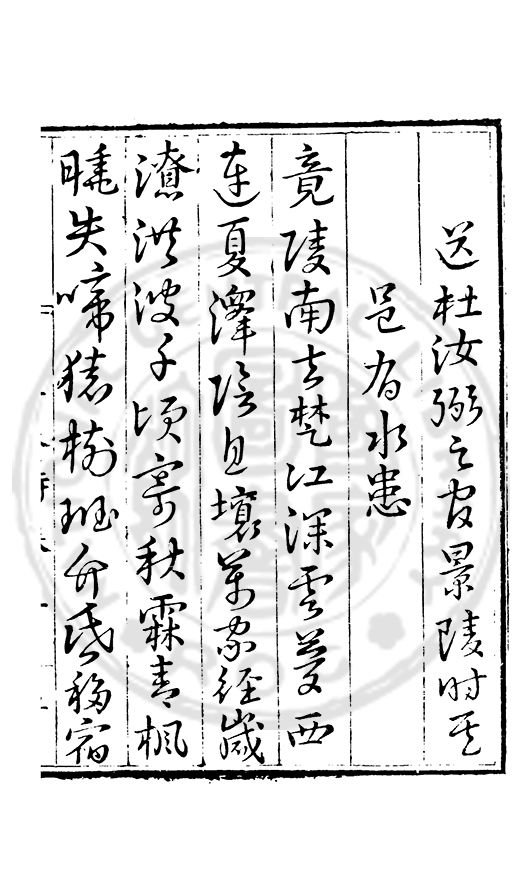 送杜汝弼之官景陵時其
邑有水患
竟陵南去楚江深雲夢西
連夏澤陰息壤萬家經歲
潦洪波千頃寄秋霖青楓
曉失啼猿樹班竹昏移宿